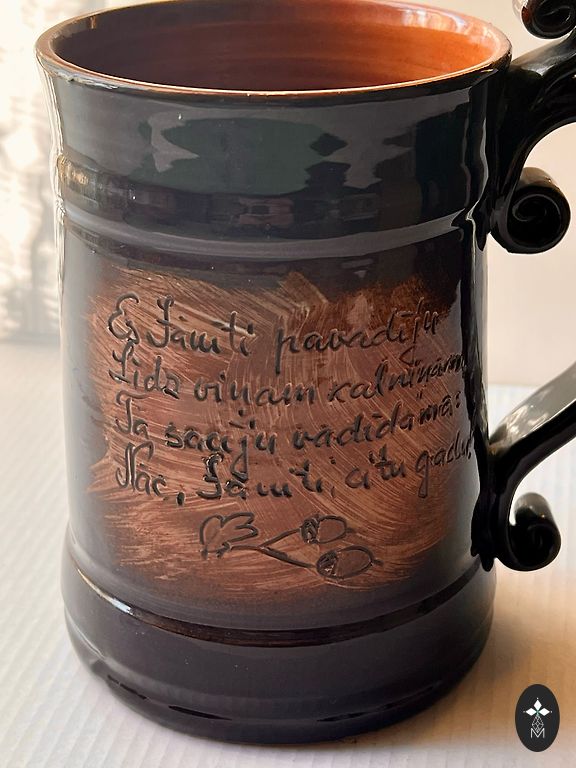 Es Jānīti pavadīju
Līdz viņam kalniņam,
Tā sacīju vadīdama:
Nāc, Jānīti, citu gadu!
M